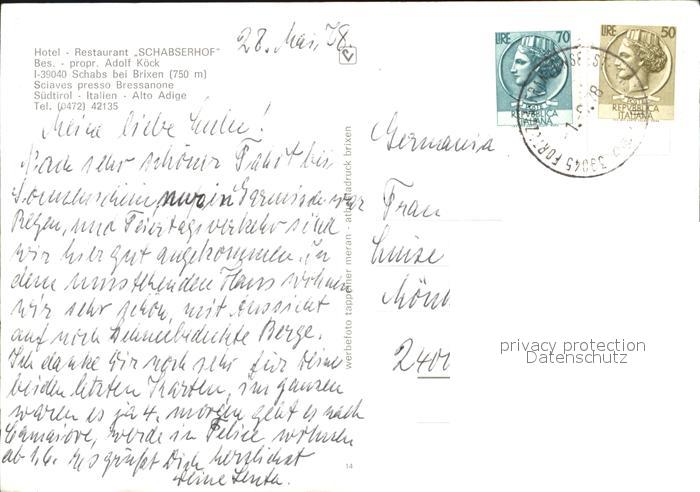 Hotel - Restaurant „SCHABSERHOF"
Bes. - propr. Adolf Köck
I-39040 Schabs bei Brixen (750 m)
Sciaves presso Bressanone
Südtirol - Italien - Alto Adige
Tel. (0472) 42135
28. Mai, 78.
Meine liebe
Nach sehr schöner Fahrt bei
Sonnenschein, nur in Garmisch war
Regen, und Feiertagsverkehr sind
wir hier gut angekommen. In
dem umstehenden Haus wohnen
wir sehr schön, mit Aussicht
auf noch schneebedeckte Berge.
Ich danke Dir noch sehr für Deine
beiden letzten Karten, im ganzen
waren es ja 4. morgen geht es nach
Camaiore, werde in Felice wohnen
ab 1.6. Es grüßt Dich herzlichst
Deine
werbefoto tappeiner meran - athesiadruck brixen
14
LIRE 70
POSTE
REPVBBLICA
ITALIANA
LIRE 50
POSTE
REPVBBLICA
ITALIANA
39045
Germania
Frau
Luise
2400
privacy protection
Datenschutz